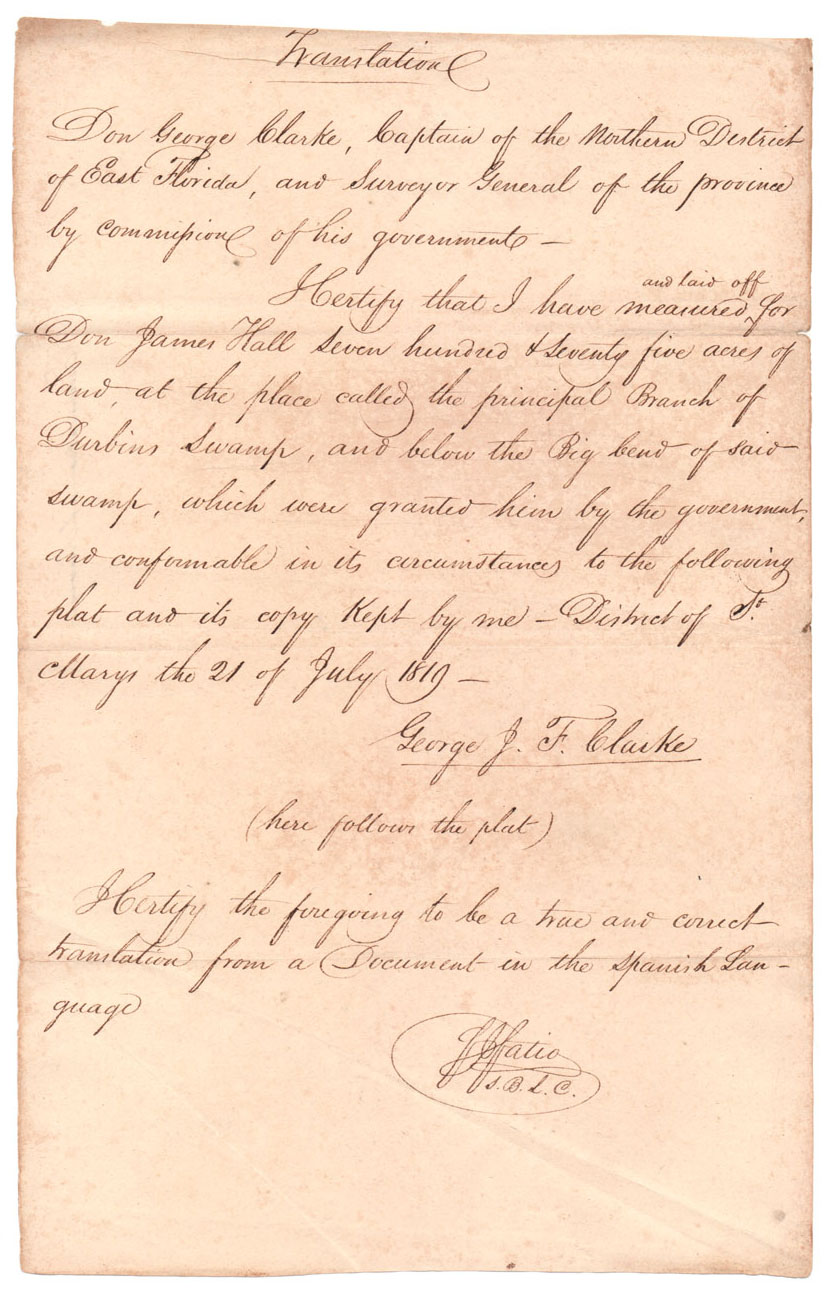 Translation
Don George Clarke, Captain of the Northern District
of East Florida, and Surveyor General of the province
by commission of his government —
I Certify that I have measured and laid off for
Don James Hall seven hundred & seventy five acres of
land, at the place called the principal Branch of
Durbins Swamp, and below the Big bend of said
swamp, which were granted him by the government,
and conformable in its circumstances to the following
plat and its copy Kept by me — District of St.
Marys the 21 of July 1819 —
George J. F. Clarke
(here follows the plat)
I Certify the foregoing to be a true and correct
translation from a Document in the Spanish Lan-
guage
F J Fatio
S. B. L. C.